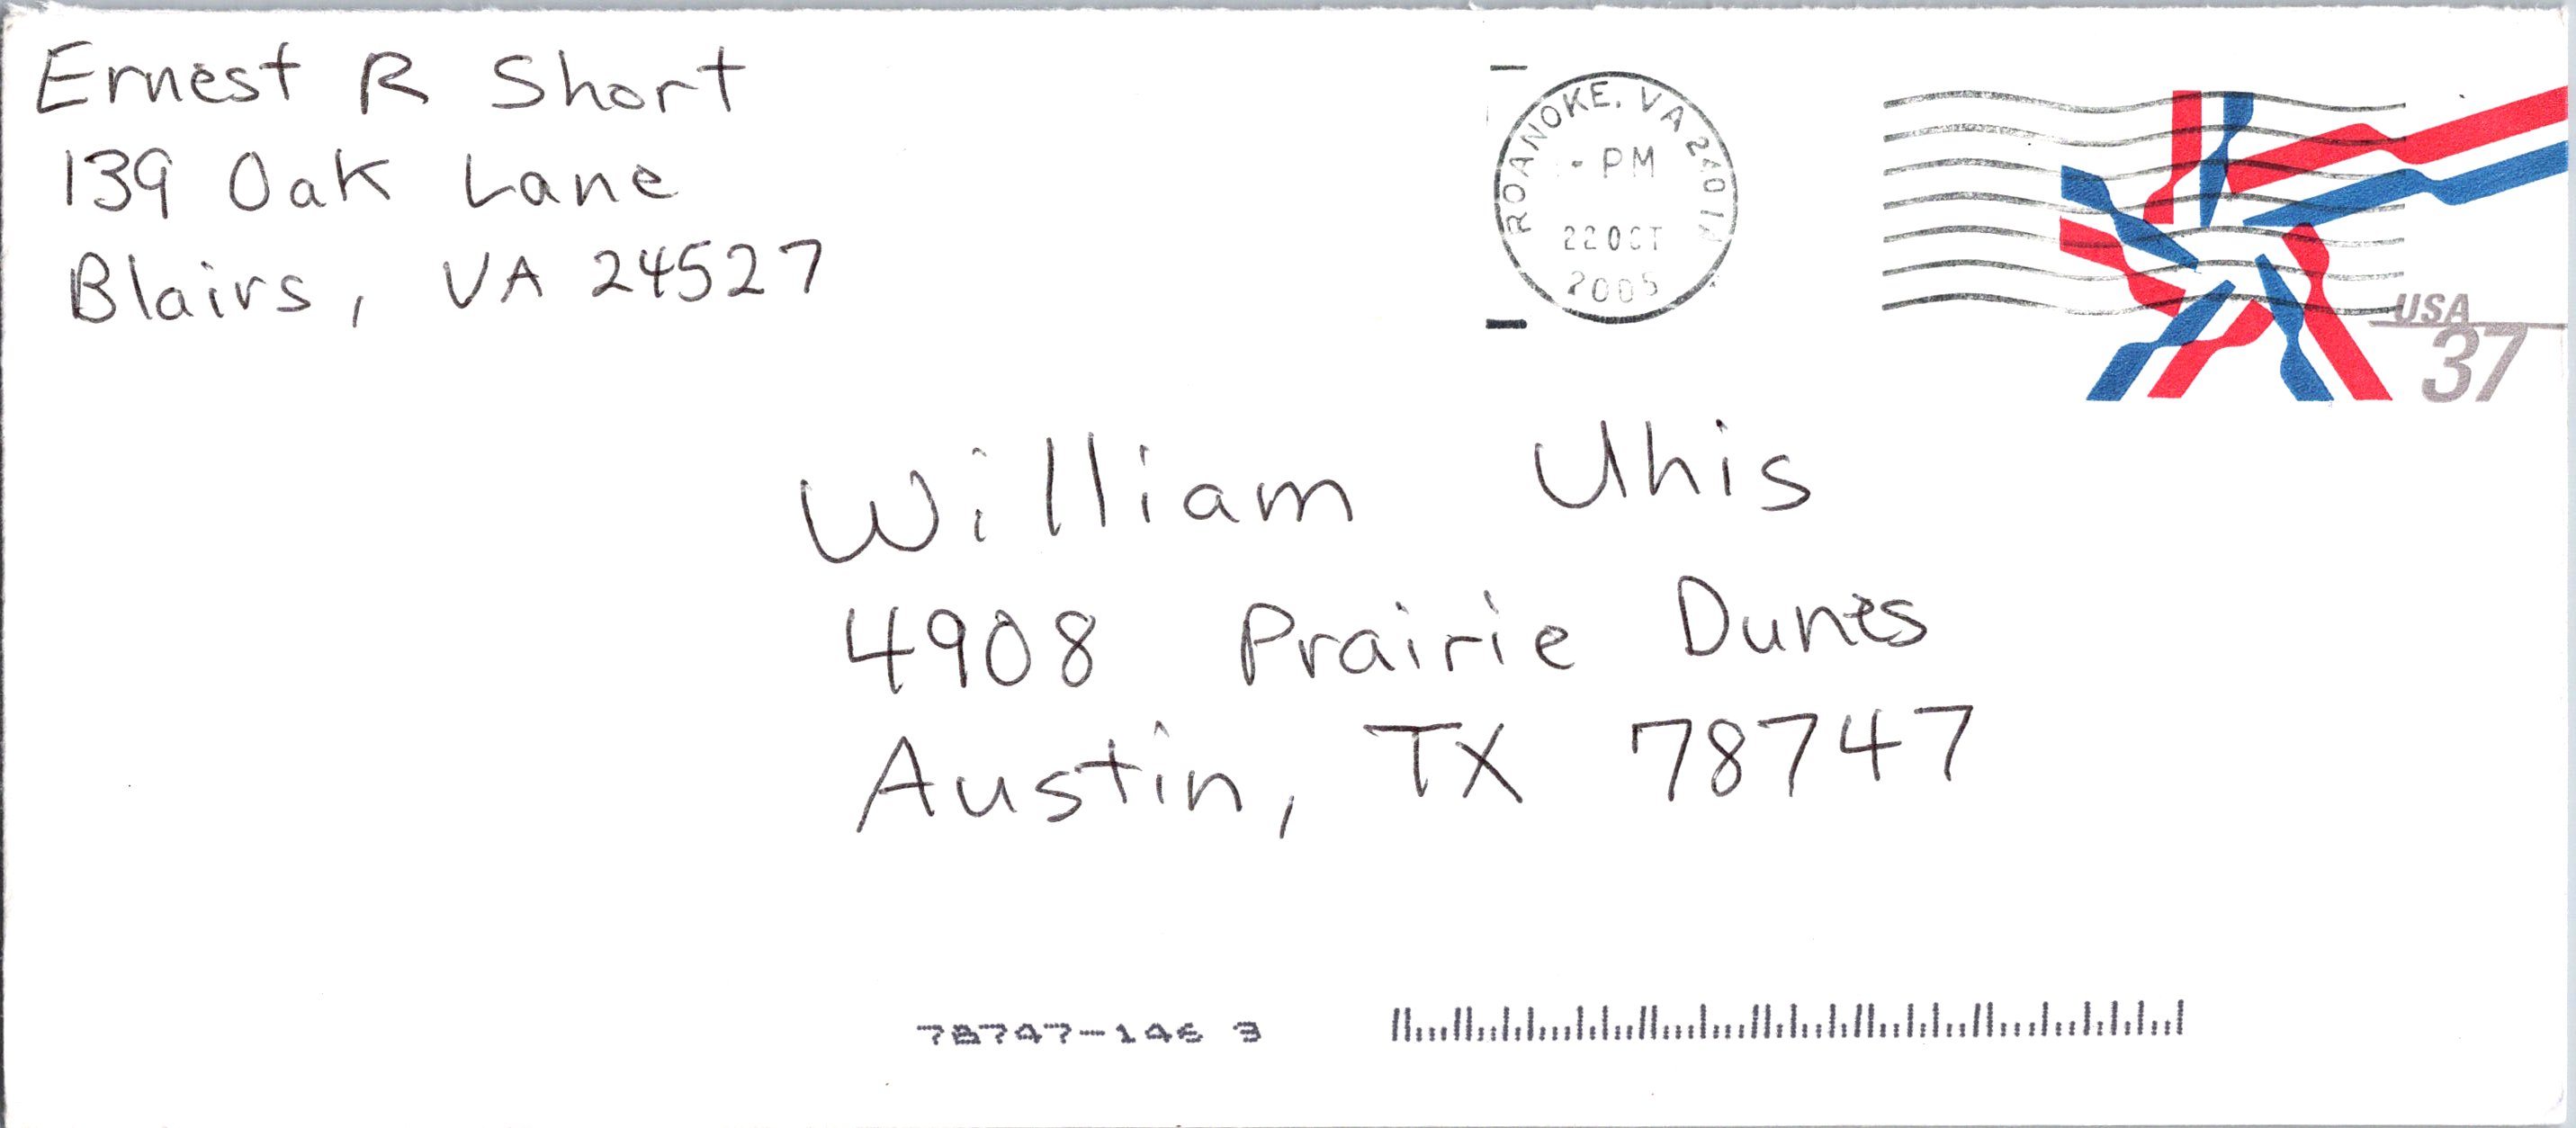 Ernest R Short
139 Oak Lane
Blairs, VA 24527
ROANOKE, VA 240
PM
22 OCT
2005
USA
37
William Uhis
4908 Prairie Dunes
Austin, TX 78747
78747-146 3